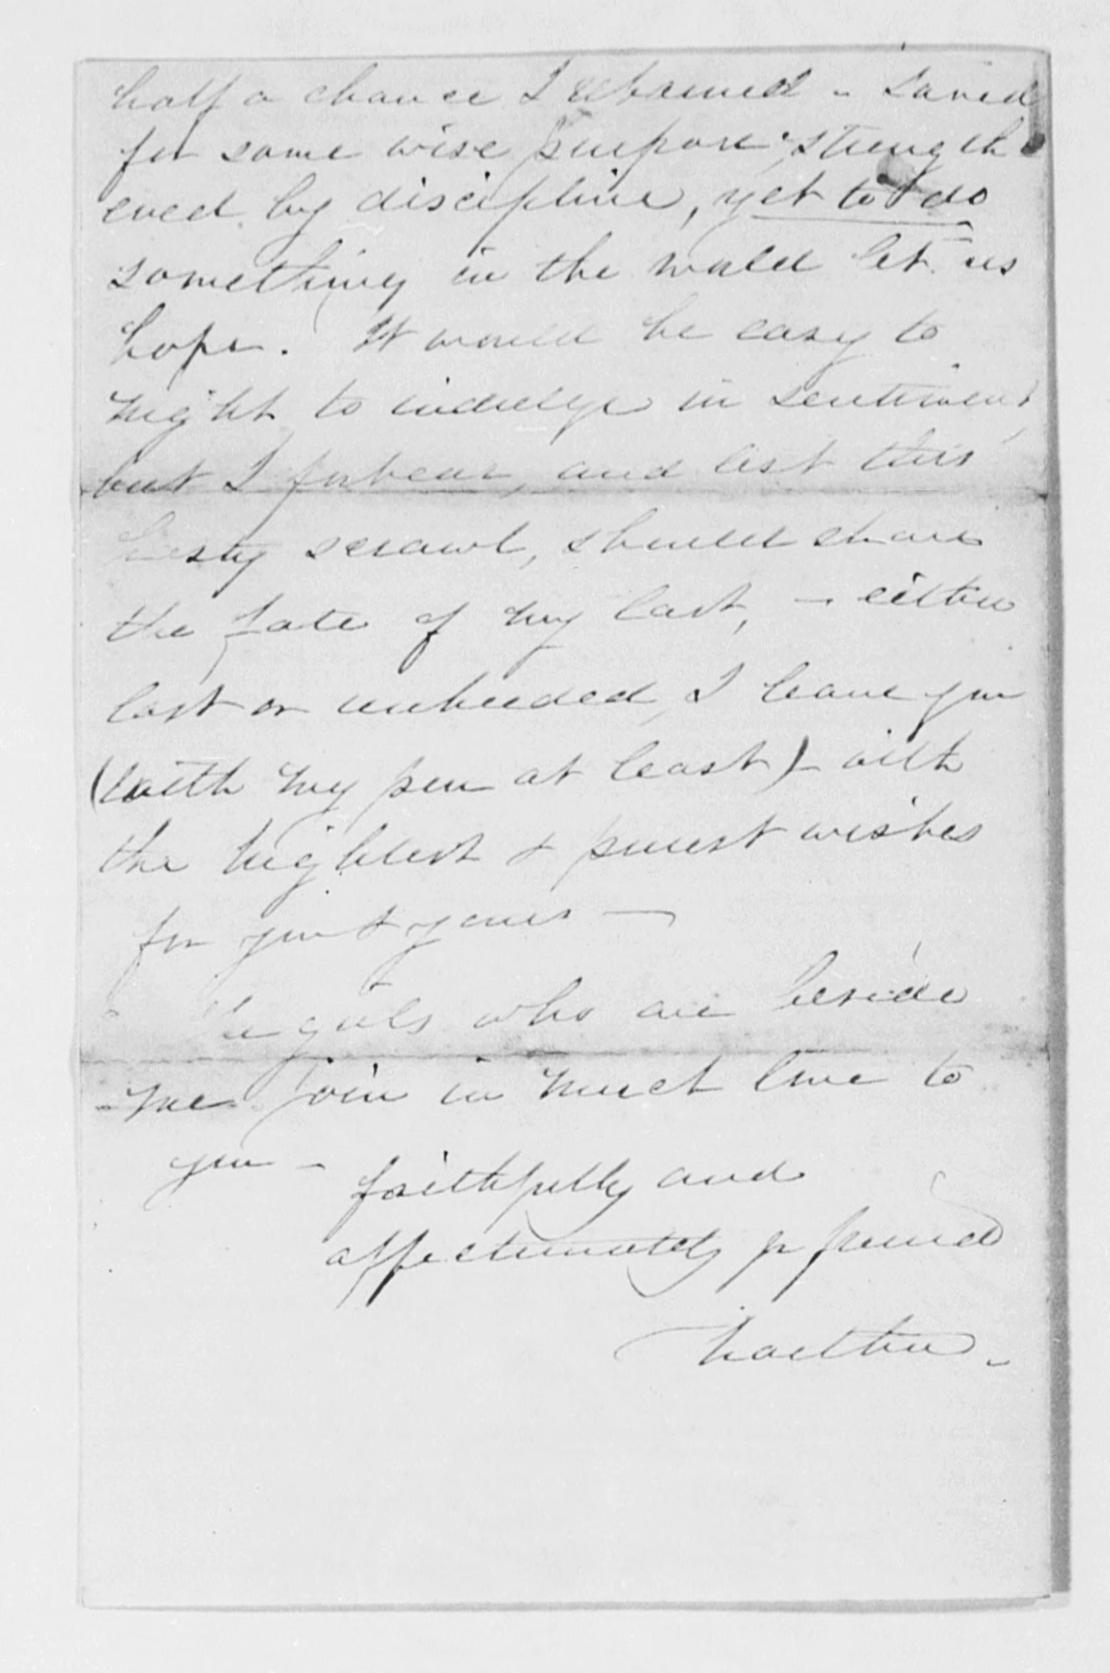 half a chance I returned - Saved
for some wise purpose, strength
ened by discipline, yet to do
something in the world let us
hope. It would be easy to
night to indulge in sentiment
but I forbear, and lest this
hasty scrawl, should share
the fate of my last, - either
lost or unheeded, I leave you
(with my pen at least) - with
the highest & purest wishes
for you & yours -
The girls who are beside
me join in much love to
you - faithfully and
affectionately yr friend